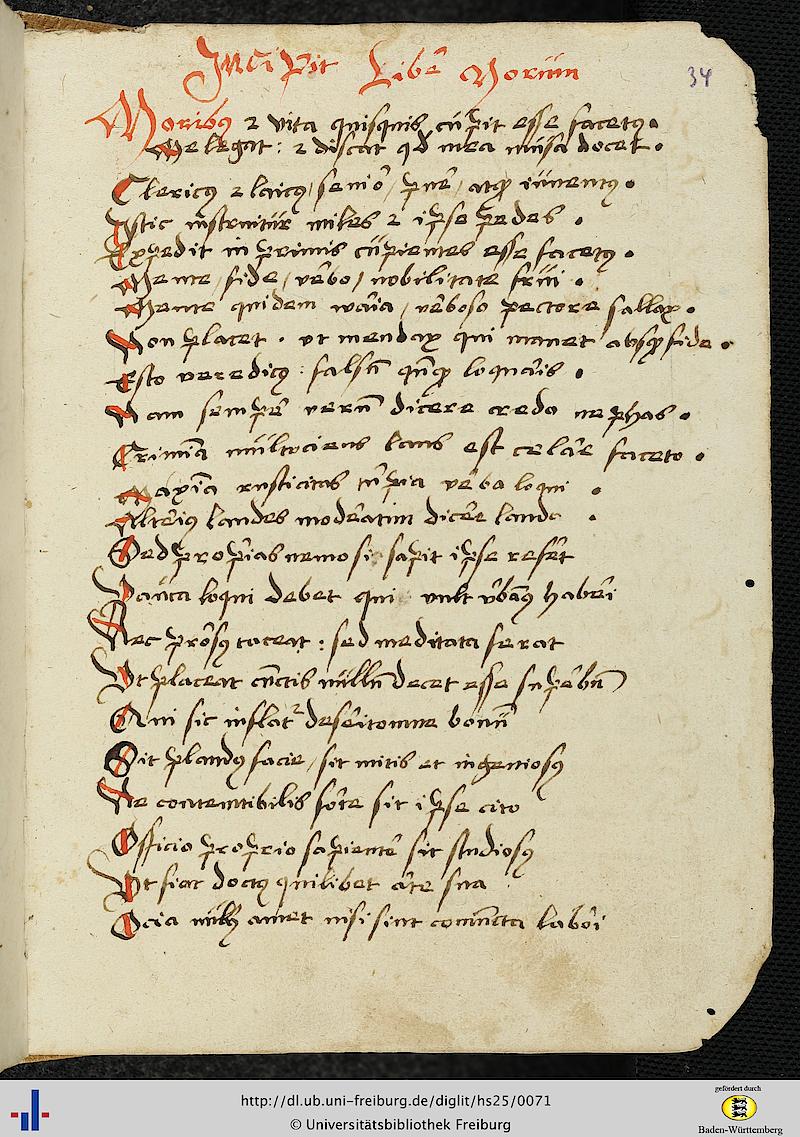 Incipit Libē Morum
34
Moribꝰ ⁊ vita quisquis cupit esse facetꝰ
Me legat : ⁊ discat qd mea musa docet
Clericꝰ ⁊ laicꝰ / senior / puer / atqꝫ iuuentꝰ
Istic instruitur miles ⁊ ipse pedes
Expedit in primis cupientes esse facetꝰ
Mente / fide / verbo / nobilitate frui
Mente quidem varia / verboso pectore fallax
Non placet . vt mendax qui manet absqꝫ fide
Esto veredicꝰ : falsū loquaris
Nam semper verū dicere credo nephas
Crimīa multociens laus est celare faceto
Maxīa rusticitas turpia verba loqui
Alterius laudes moderatim dicere lauda
Sed proprias nemo si sapit ipse refert
Pauca loqui debet qui vult vrbanꝰ haberi
Nec prorsꝰ taceat : sed meditata ferat
Vt placeat cūctis nullū decet esse superbū
Qui sic inflatur bonū
Sit blandꝰ facie / sit mitis et ingeniosꝰ
Ne contemtibilis forte sit ipse cito
Officio proprio sapienter sit studiosꝰ
Vt fiat doctꝰ quilibet arte sua
Ocia nullꝰ amet nisi sint coniuncta labori
http://dl.ub.uni-freiburg.de/diglit/hs25/0071
© Universitätsbibliothek Freiburg
gefördert durch
Baden-Württemberg